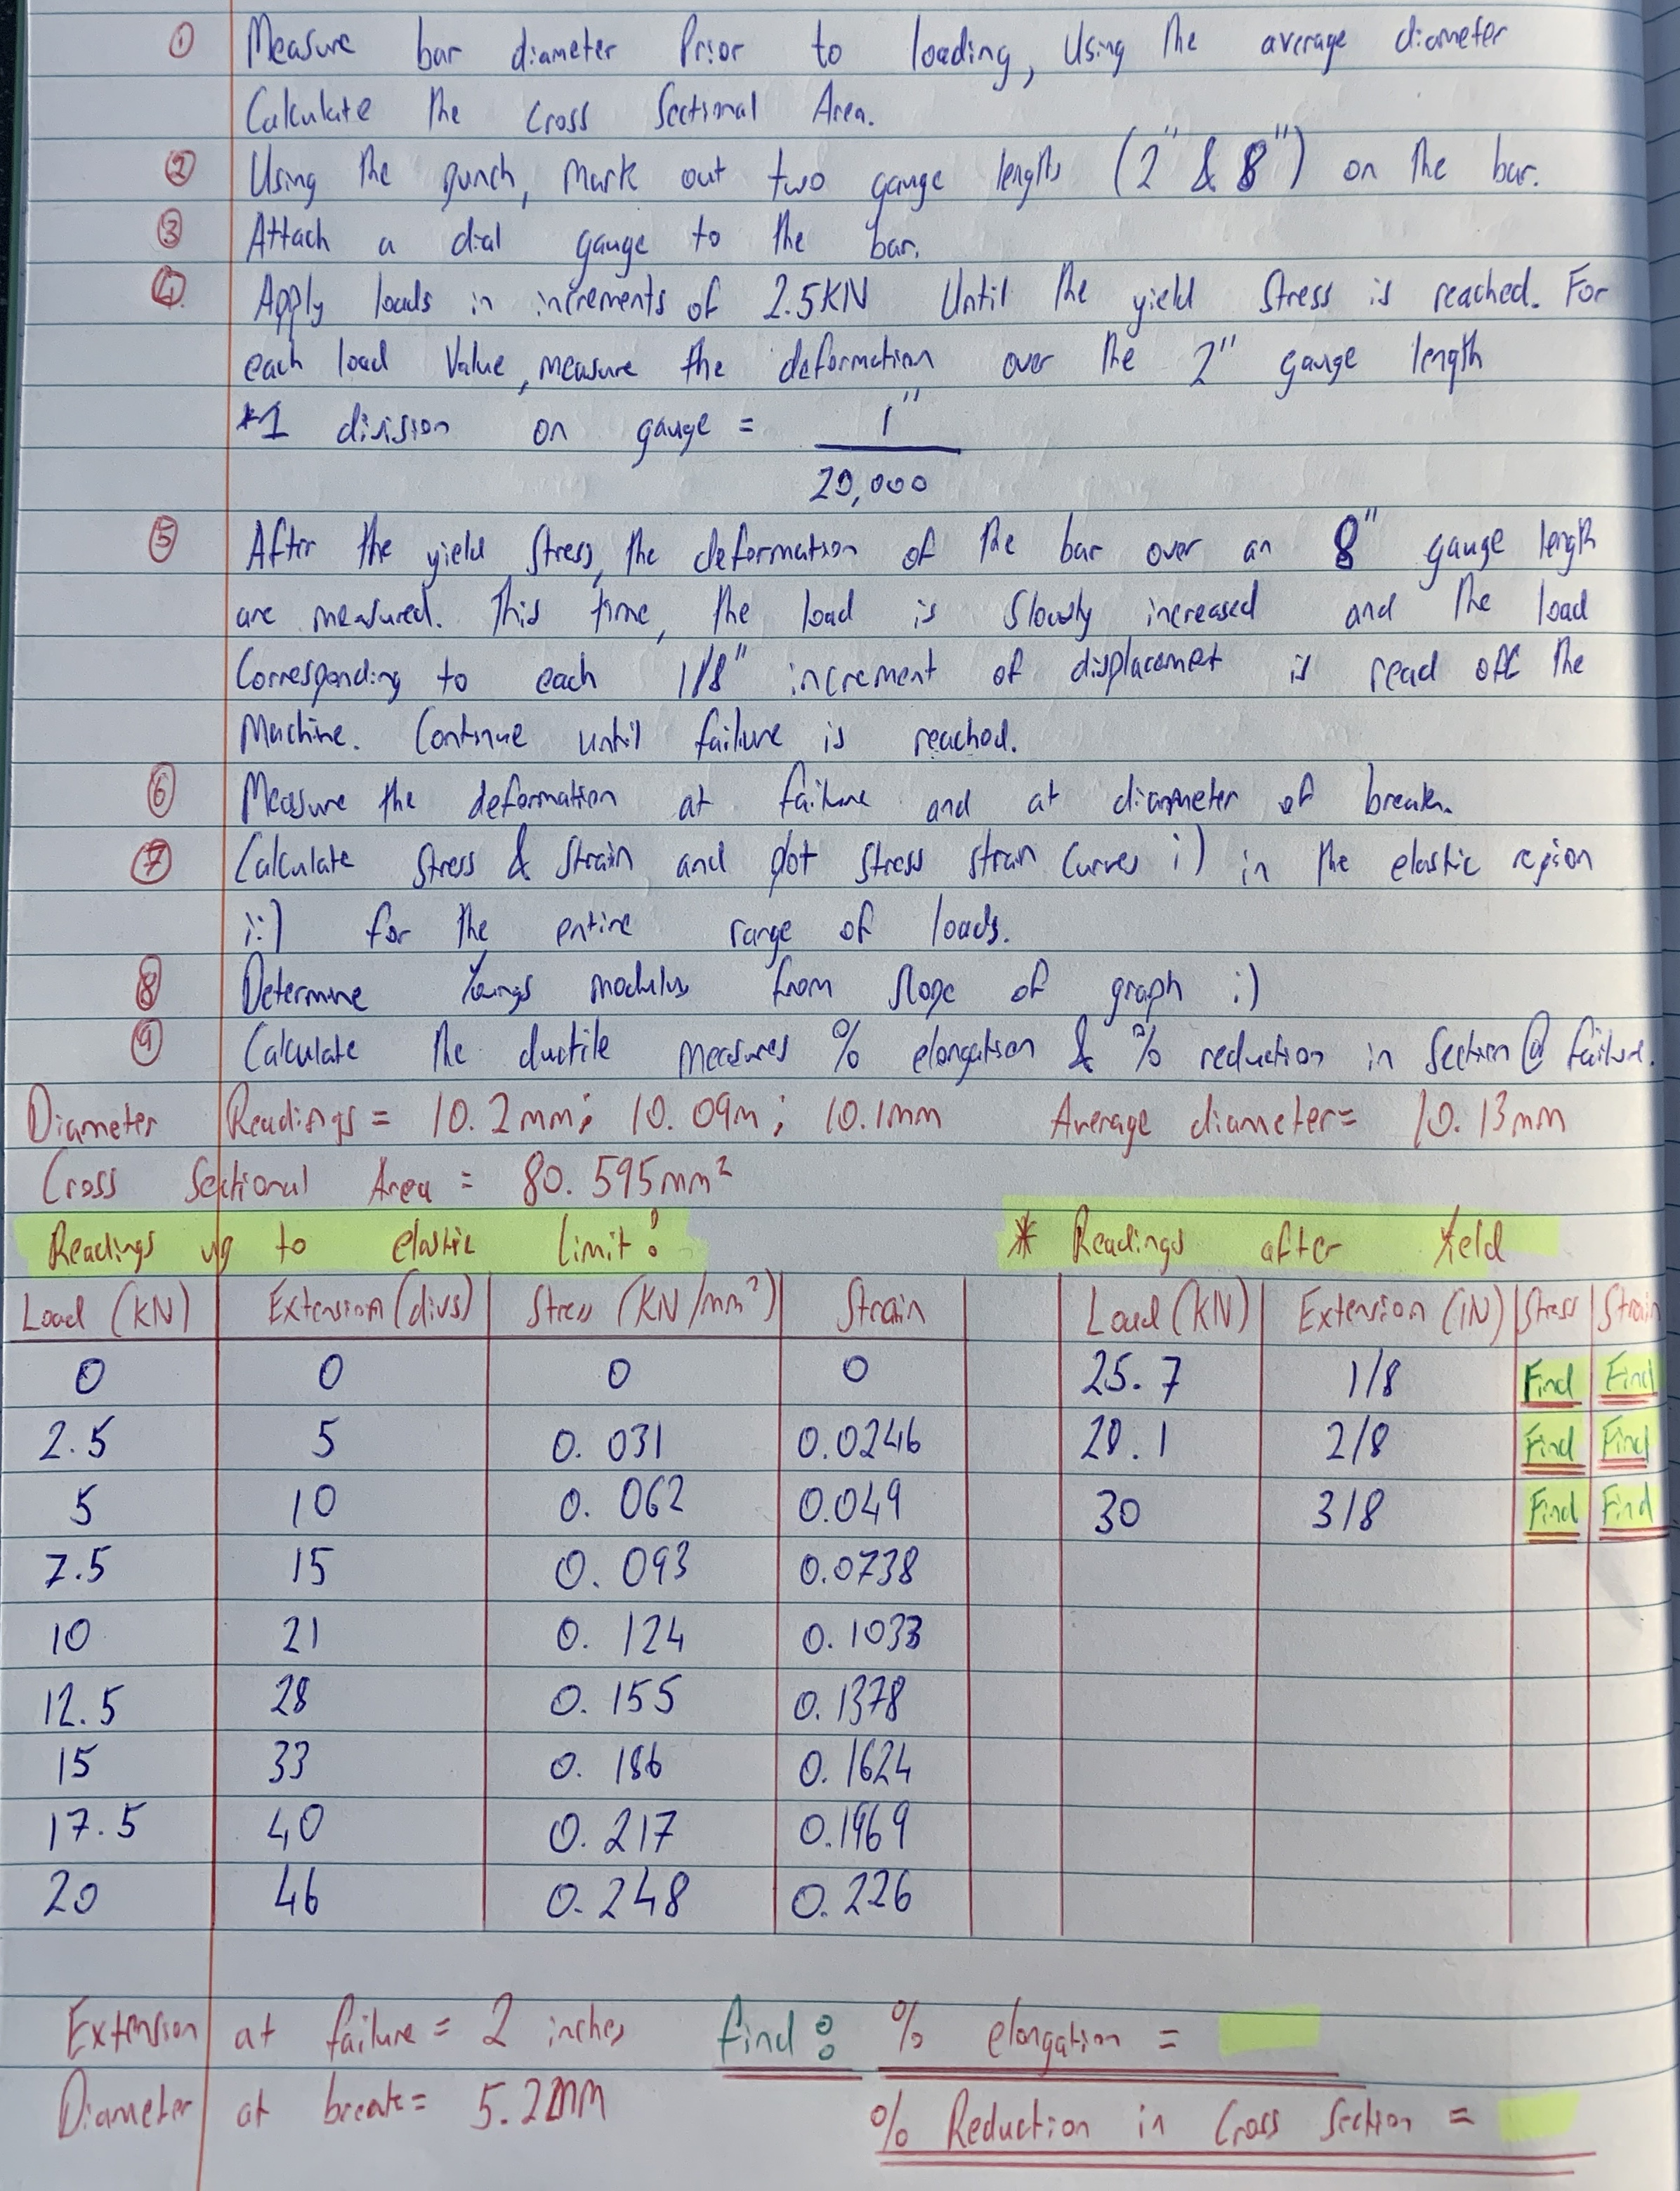 ① Measure bar diameter Prior to loading, Using the average diameter
Calculate the Cross Sectional Area.
② Using the punch, mark out two gauge lengths (2" & 8") on the bar.
③ Attach a dial gauge to the bar.
④ Apply loads in increments of 2.5KN Until the yield Stress is reached. For
each load Value, measure the deformation over the 2" gauge length
*1 division on gauge = 1"
20,000
⑤ After the yield Stress, the deformation of the bar over an 8" gauge length
are measured. This time, the load is Slowly increased and the load
Corresponding to each 1/8" increment of displacemet is read off the
Machine. Continue until failure is reached.
⑥ Measure the deformation at failure and at diameter of break.
⑦ Calculate Stress & Strain and plot stress strain Curves i) in the elastic region
ii) for the entire range of loads.
⑧ Determine Youngs modulus from slope of graph i)
⑨ Calculate the ductile measures % elongation & % reduction in Section @ failure.
Diameter Readings = 10.2mm; 10.09m; 10.1mm Average diameter = 10.13mm
Cross Sectional Area = 80.595mm²
Readings up to elastic limit: * Readings after Yield
Load (KN) Extension (divs) Stress (KN/mm²) Strain Load (KN) Extension (IN) Stress Strain
0 0 0 0 25.7 1/8 Find Find
2.5 5 0.031 0.0246 28.1 2/8 Find Find
5 10 0.062 0.049 30 3/8 Find Find
7.5 15 0.093 0.0738
10 21 0.124 0.1033
12.5 28 0.155 0.1378
15 33 0.186 0.1624
17.5 40 0.217 0.1969
20 46 0.248 0.226
Extension at failure = 2 inches find: % elongation =
Diameter at break = 5.2mm % Reduction in Cross Section =